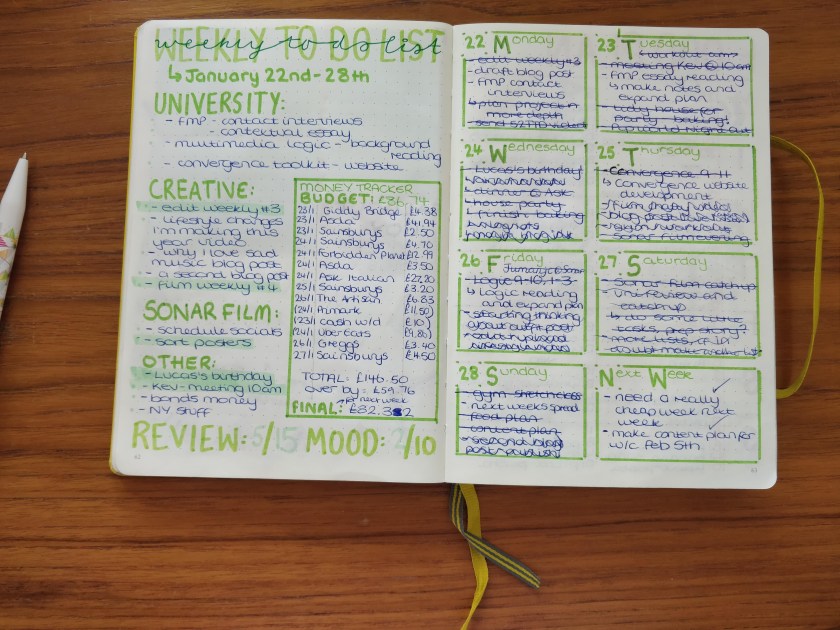 WEEKLY TO DO LIST
weekly to do list
↳ January 22nd - 28th
UNIVERSITY:
- FMP - contact interviews
- contextual essay
- multimedia logic - background
reading
- convergence toolkit - website
CREATIVE:
- edit weekly #3
- lifestyle changes
i'm making this
year video
- why i love sad
music blog post
- a second blog post
- film weekly #4
SONAR FILM:
- schedule socials
- sort posters
OTHER:
- Lucas's birthday
- Kev - meeting 10am
- bonds money
- NY stuff
MONEY TRACKER
BUDGET: £86.74
23/1 Giddy Bridge £4.38
23/1 Asda £41.94
23/1 Sainsburys £2.50
24/1 Sainsburys £4.70
24/1 Forbidden Planet £12.99
24/1 Asda £3.50
24/1 Ask Italian £27.20
25/1 Sainsburys £3.20
26/1 The Artisan £6.83
(24/1 Primark £11.50)
(23/1 cash w/d £10)
(24/1 Uber cats
26/1 Greggs £3.40
27/1 Sainsburys £4.50
TOTAL: £146.50
over by: £59.76
for next week
FINAL: £82.32
REVIEW: 5/15 MOOD: 2/10
22 Monday
- edit weekly #3
- draft blog post
- FMP contact
interviews
↳ plan project in
more depth
- send S2TTD videos
23 Tuesday
↳ workout arms
- meeting Kev @ 10am
- FMP essay reading
↳ make notes and
expand plan
- tidy house for
party - baking!
24 Wednesday
- Lucas's birthday
- dinner @ Ask
- house party
- finish baking
25 Thursday
- Convergence 9-11
↳ Convergence website
development
- Sonar film meeting
26 Friday
- Logic 9-10, 1-3
↳ Logic reading
and expand plan
- starting thinking
about outfit post
27 Saturday
- Sonar film catch up
- uni finesse and
catchup
↳ do some write
tasks, prep story?
- make lists, if in
28 Sunday
- gym stretches
- next weeks spread
- food plan
- content plan
- second blog
post publish
Next Week
- need a really
cheap week next
week
- make content plan for
w/c Feb 5th